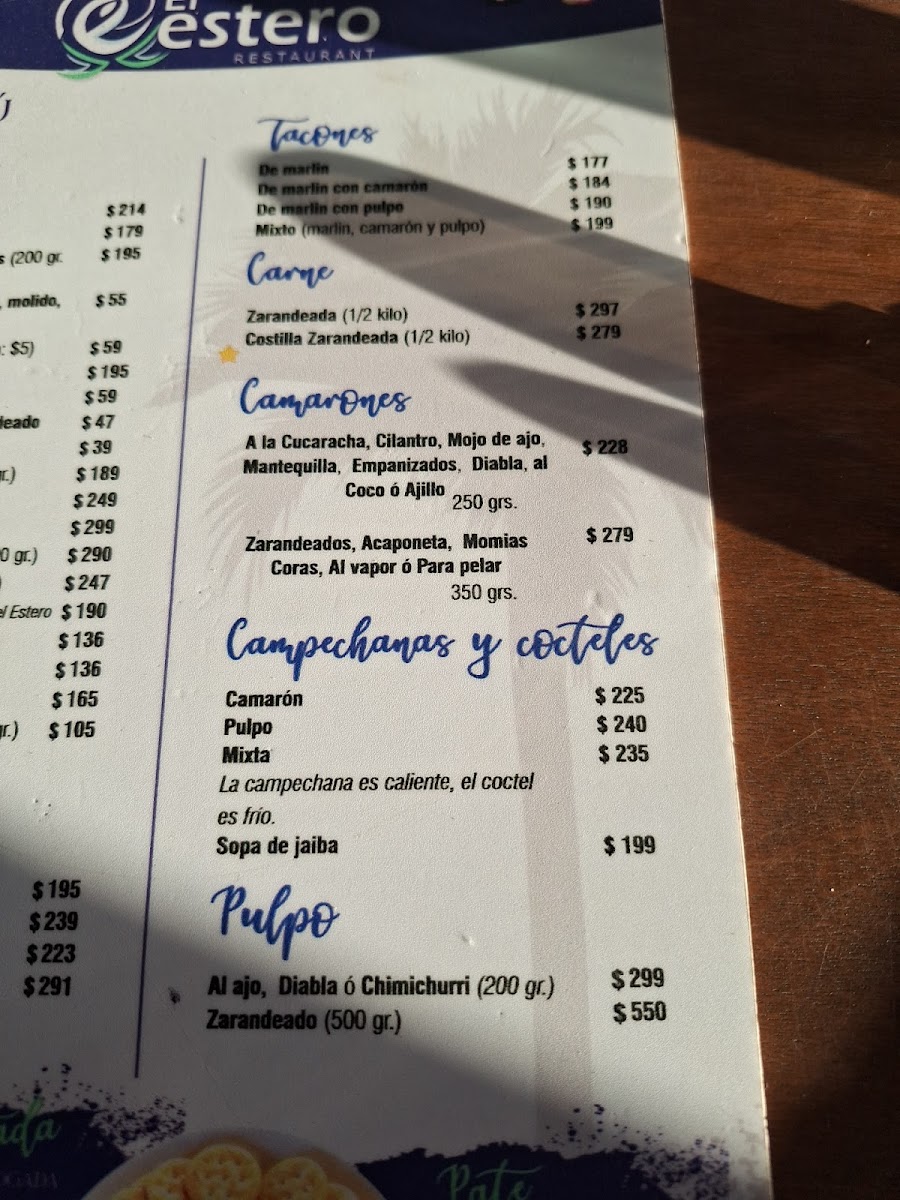 El
estero
RESTAURANT
$ 214
$ 179
s (200 gr. $ 195
, molido, $ 55
: $5) $ 59
$ 195
$ 59
deado $ 47
$ 39
gr.) $ 189
$ 249
$ 299
0 gr.) $ 290
) $ 247
el Estero $ 190
$ 136
$ 136
$ 165
gr.) $ 105
$ 195
$ 239
$ 223
$ 291
Tacones
De marlin $ 177
De marlin con camarón $ 184
De marlin con pulpo $ 190
Mixto (marlin, camarón y pulpo) $ 199
Carne
Zarandeada (1/2 kilo) $ 297
Costilla Zarandeada (1/2 kilo) $ 279
Camarones
A la Cucaracha, Cilantro, Mojo de ajo, $ 228
Mantequilla, Empanizados, Diabla, al
Coco ó Ajillo
250 grs.
Zarandeados, Acaponeta, Momias $ 279
Coras, Al vapor ó Para pelar
350 grs.
Campechanas y cocteles
Camarón $ 225
Pulpo $ 240
Mixta $ 235
La campechana es caliente, el coctel
es frío.
Sopa de jaiba $ 199
Pulpo
Al ajo, Diabla ó Chimichurri (200 gr.) $ 299
Zarandeado (500 gr.) $ 550